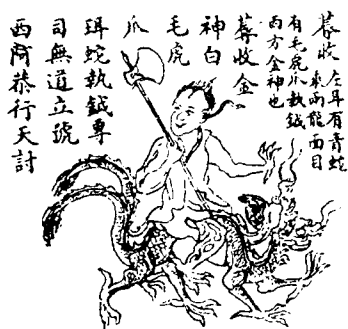 蓐收 左耳有青蛇
乘兩龍面目
有毛虎爪執鉞
西方金神也
蓐收金
神白
毛虎
爪
珥蛇執鉞專
司無道立號
西阿恭行天討